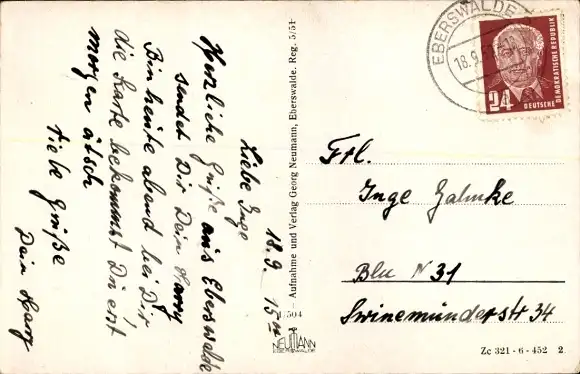 18.9. 15°°
Liebe Inge
Herzliche Grüße aus Eberswalde
sendet Dir Dein Harry
Bin heute abend bei Dir
die Karte bekommst Du erst
morgen ätsch
Liebe Grüße
Dein Harry
Aufnahme und Verlag Georg Neumann, Eberswalde. Reg. 5/51
NEUMANN
EBERSWALDE
EBERSWALDE
18.9.
24
DEUTSCHE
DEMOKRATISCHE REPUBLIK
Frl.
Inge Zahnke
Bln N 31
Swinemünderstr 34
Ze 321 - 6 - 452 2